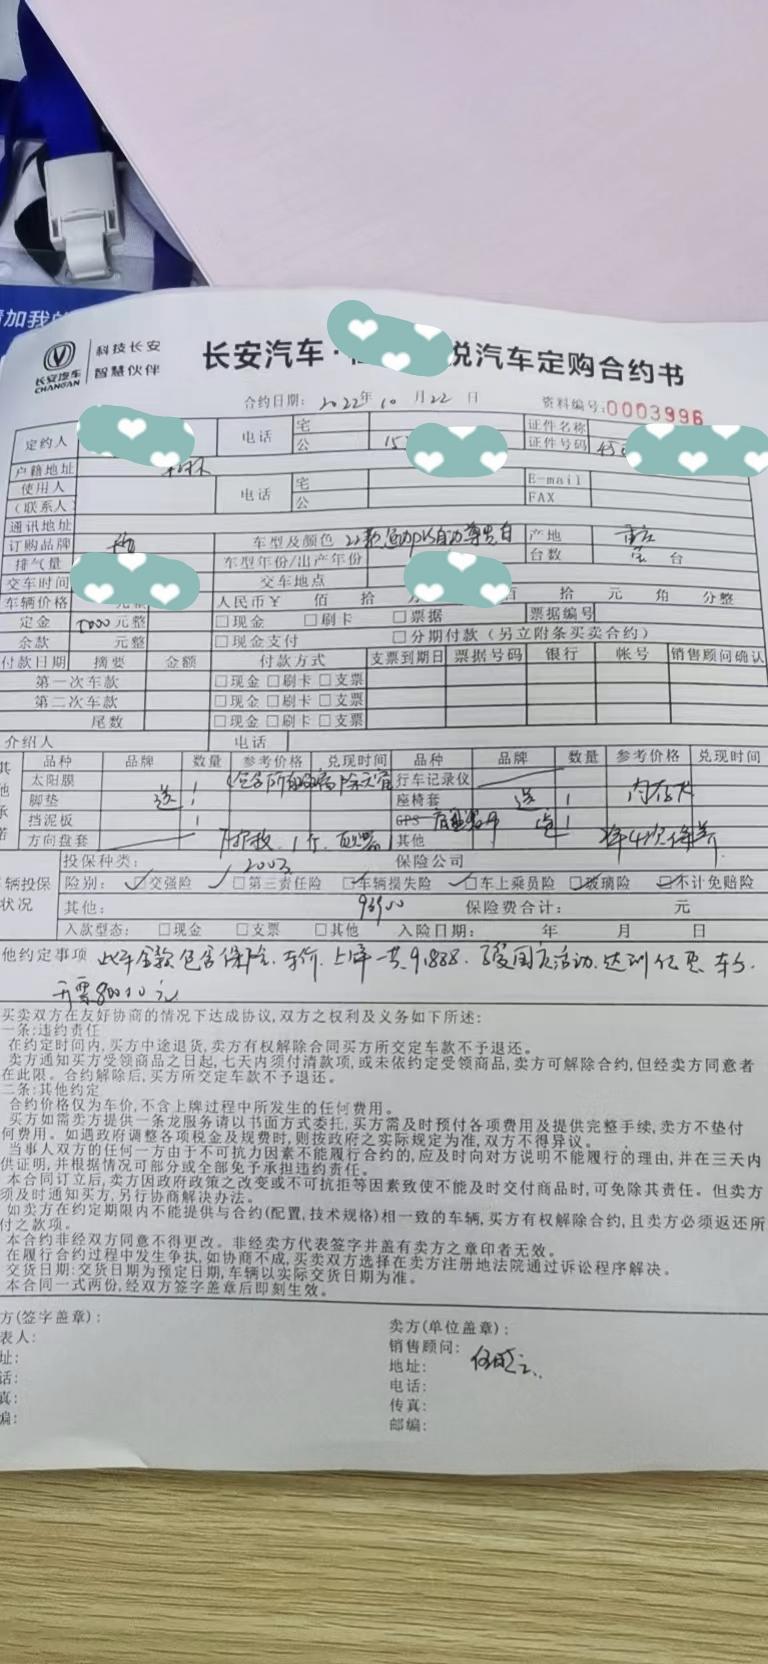 请加我的
科技长安
智慧伙伴
长安汽车
CHANGAN
长安汽车· 悦汽车定购合约书
合约日期: 2022年 10 月 22 日 资料编号:0003996
定约人 电话 宅 证件名称
公 15 证件号码 45
户籍地址
使用人 电话 宅 E-mail
(联系人) 公 FAX
通讯地址
订购品牌 车型及颜色 产地 重庆
排气量 车型年份/出产年份 台数 台
交车时间 交车地点
车辆价格 元整 人民币¥ 佰 拾 万 佰 拾 元 角 分整
定金 元整 □现金 □刷卡 □票据 票据编号
余款 元整 □现金支付 □分期付款(另立附条买卖合约)
付款日期 摘要 金额 付款方式 支票到期日 票据号码 银行 帐号 销售顾问确认
第一次车款 □现金 □刷卡 □支票
第二次车款 □现金 □刷卡 □支票
尾数 □现金 □刷卡 □支票
介绍人 电话
其他承诺
品种 品牌 数量 参考价格 兑现时间 品种 品牌 数量 参考价格 兑现时间
太阳膜 行车记录仪
脚垫 送 1 座椅套 送 1 内存卡
挡泥板 1 GPS 1
方向盘套 其他 2年4次保养
辆投保状况
投保种类: 保险公司
险别: 交强险 □第三责任险 车辆损失险 车上乘员险 玻璃险 不计免赔险
其他: 保险费合计: 元
入款型态: □现金 □支票 □其他 入险日期: 年 月 日
他约定事项 此车全款包含保险、车价、上牌一共9.888. 享受国庆活动.
开票80010元
买卖双方在友好协商的情况下达成协议,双方之权利及义务如下所述:
一条:违约责任
在约定时间内,买方中途退货,卖方有权解除合同买方所交定车款不予退还。
卖方通知买方受领商品之日起,七天内须付清款项,或未依约定受领商品,卖方可解除合约,但经卖方同意者
在此限。合约解除后,买方所交定车款不予退还。
二条:其他约定
合约价格仅为车价,不含上牌过程中所发生的任何费用。
买方如需卖方提供一条龙服务请以书面方式委托,买方需及时预付各项费用及提供完整手续,卖方不垫付
何费用。如遇政府调整各项税金及规费时,则按政府之实际规定为准,双方不得异议。
当事人双方的任何一方由于不可抗力因素不能履行合约的,应及时向对方说明不能履行的理由,并在三天内
供证明,并根据情况可部分或全部免予承担违约责任。
本合同订立后,卖方因政府政策之改变或不可抗拒等因素致使不能及时交付商品时,可免除其责任。但卖方
须及时通知买方,另行协商解决办法。
如卖方在约定期限内不能提供与合约(配置,技术规格)相一致的车辆,买方有权解除合约,且卖方必须返还所
付之款项。
本合约非经双方同意不得更改。非经卖方代表签字并盖有卖方之章印者无效。
在履行合约过程中发生争执,如协商不成,买卖双方选择在卖方注册地法院通过诉讼程序解决。
交货日期:交货日期为预定日期,车辆以实际交货日期为准。
本合同一式两份,经双方签字盖章后即刻生效。
方(签字盖章):
表人:
址:
话:
真:
编:
卖方(单位盖章):
销售顾问:
地址:
电话:
传真:
邮编: